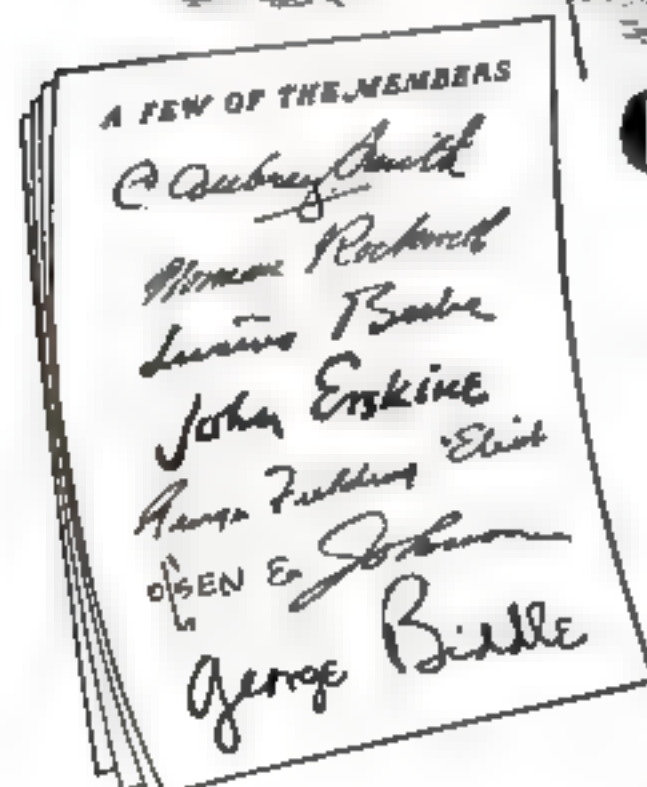 A FEW OF THE MEMBERS
C Aubrey Smith
Norman Rockwell
Lucius Beebe
John Erskine
George Fielding Eliot
OLSEN & Johnson
George Biddle